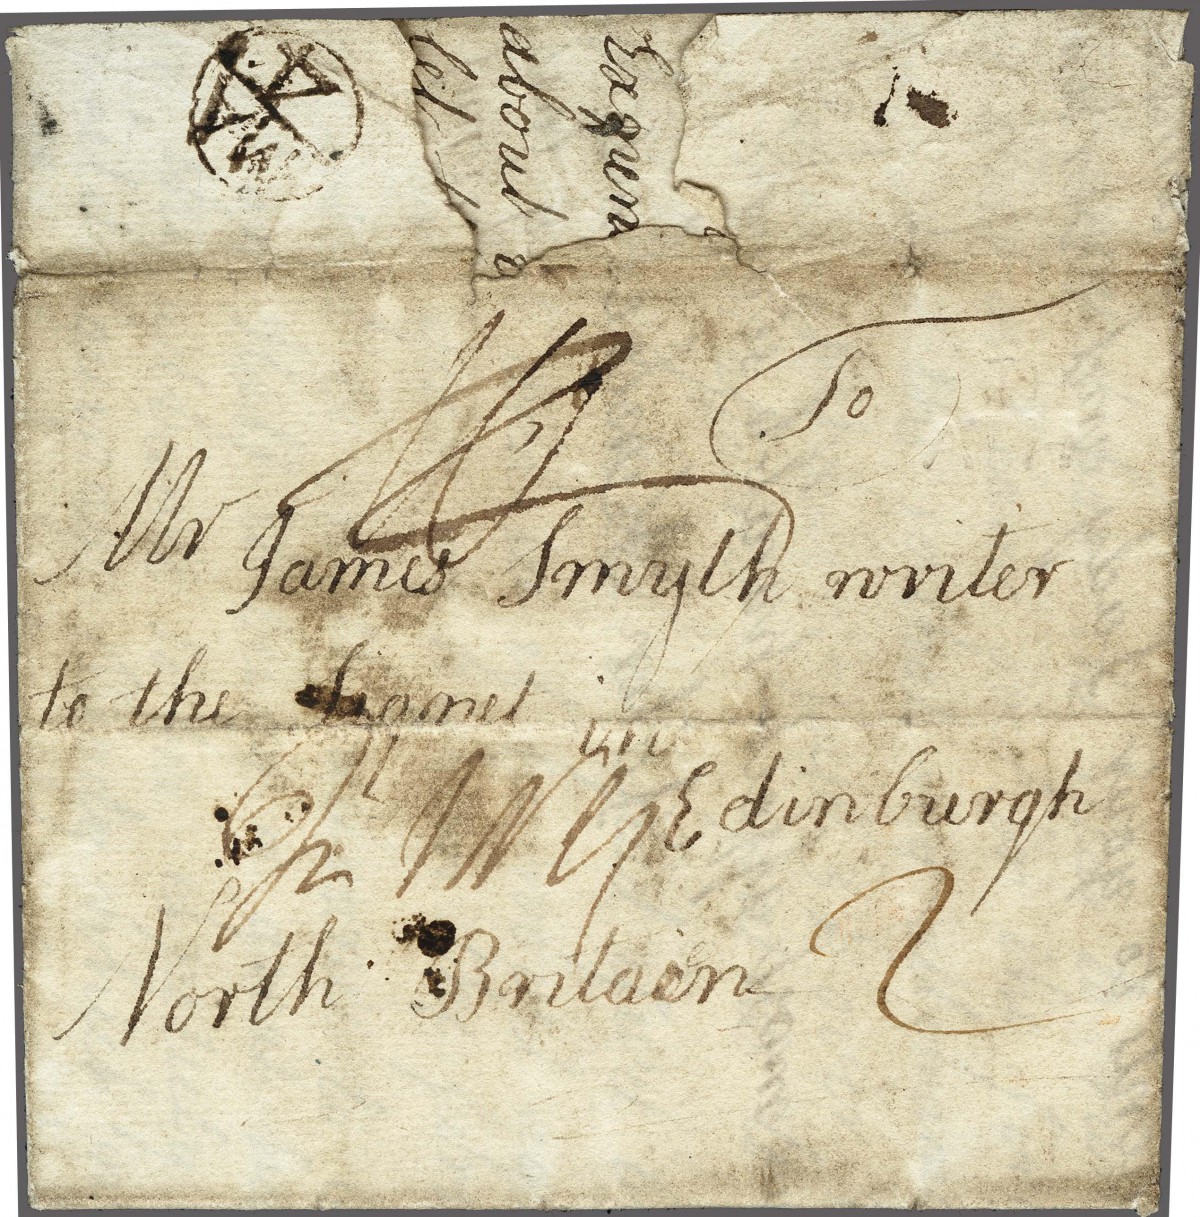 about
To
Mr James Smyth writer
to the Signet in
Edinburgh
North Britain